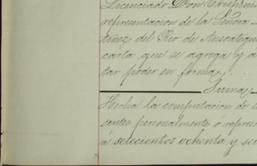 Licenciado Don
representación de la Señora
del Rio de
carta que se agrega y a
dar poder en forma.
Hecha la computacion de
sentes personalmente ó repres
á setecientos ochenta y se